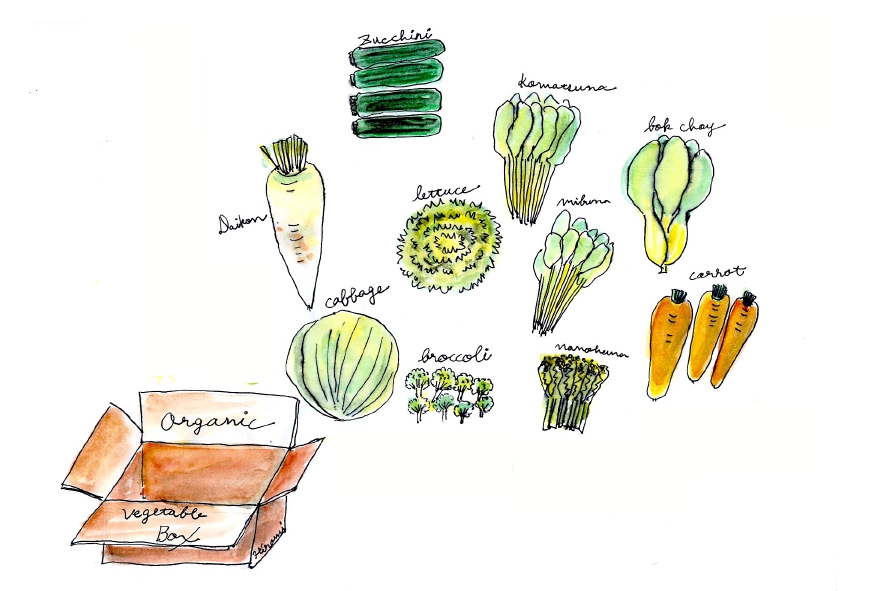 Zucchini
Komatsuna
bok choy
Daikon
lettuce
mibuna
carrot
cabbage
broccoli
nanohana
Organic
Vegetable
Box
Hiromi